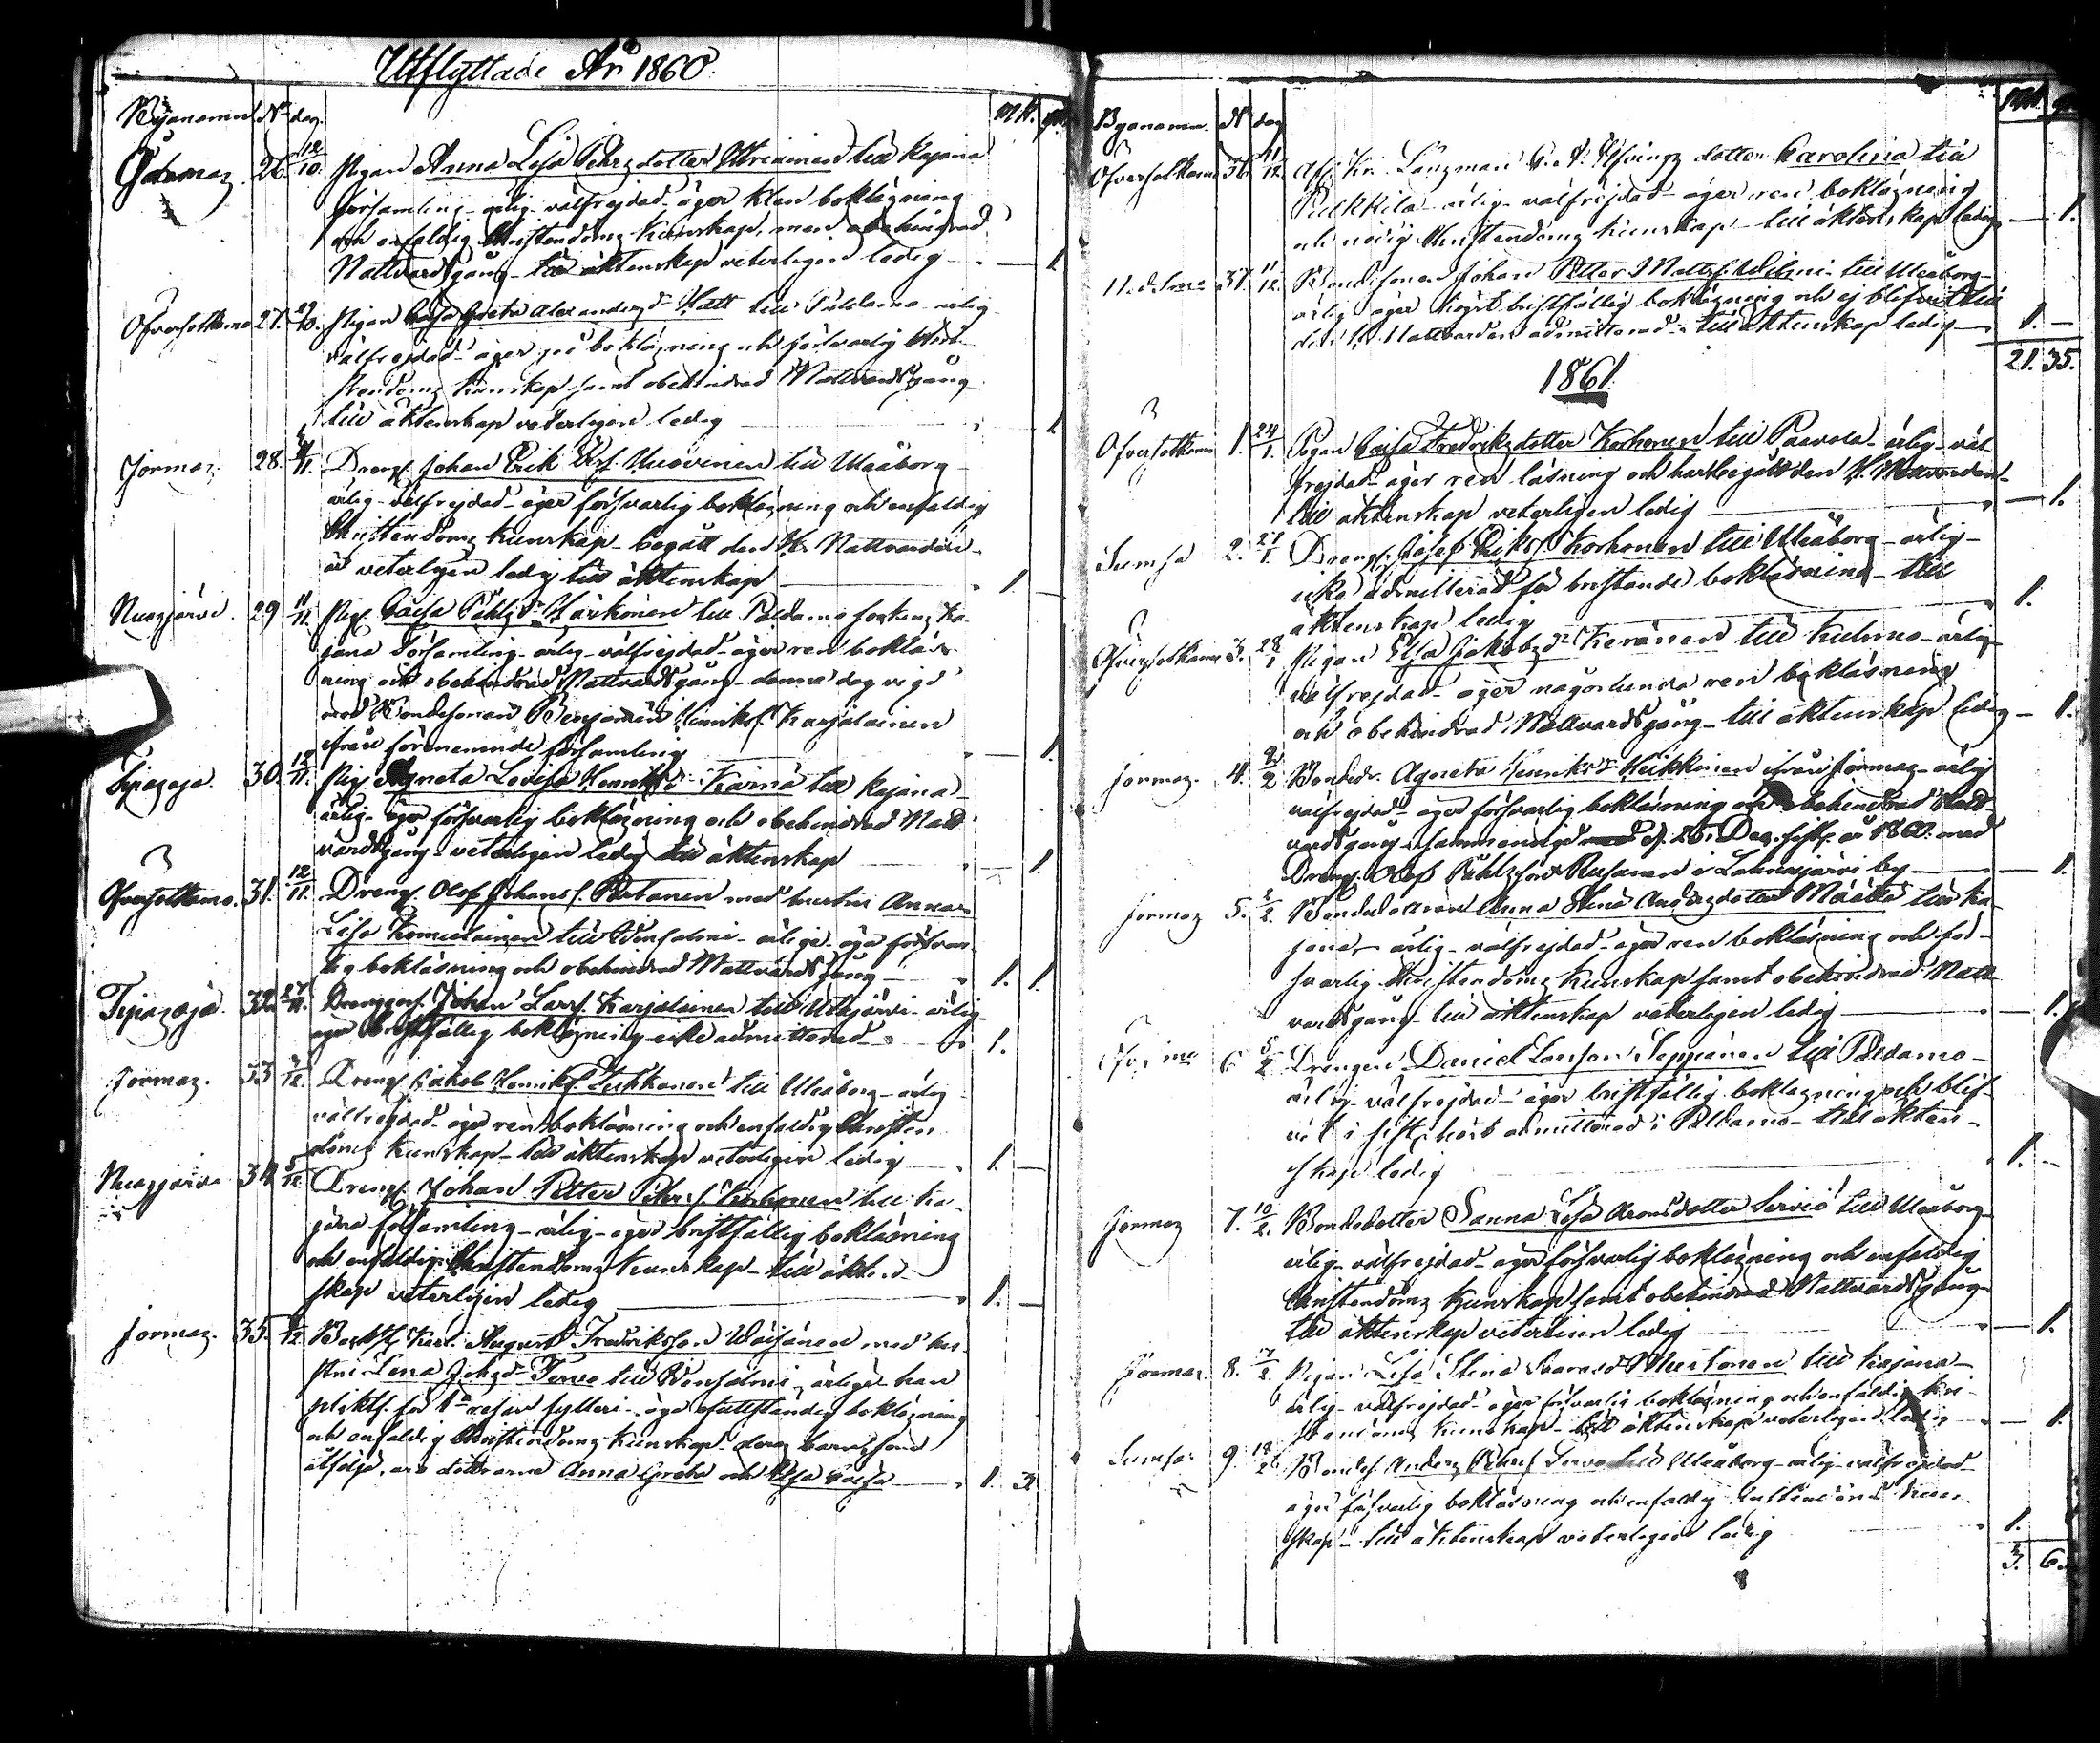 Utflyttade År 1860.
Byanamn No dag. m.k. qk.
Jormaz 26. 12/10. Pigan Anna Lisa Pehrsdotter till Kajana
församling - ärlig - välfrejdad - äger klen bokläsning
och enfaldig Christendoms kunskap, men obehindrad
Nattvardsgång - till äktenskap veterligen ledig - 1.
Öfversotkamo 27. Pigan Caisa Greta Alexandersdr Hatt till Paldamo - ärlig
välfrejdad - äger bokläsning och försvarlig Chri-
stendoms kunskap samt obehindrad Nattvardsgång
till äktenskap veterligen ledig - 1.
Jormaz. 28. Drengs. Johan Erik till Uleåborg -
ärlig - välfrejdad - äger försvarlig bokläsning och enfaldig
Christendoms kunskap - begått den H. Nattvarden -
är veterligen ledig till äktenskap 1.
Nuazjärvi. 29 11/11. Pig. Caisa Påhlsdr Härkönen till Paldamo Ka-
jana församling - ärlig - välfrejdad - äger ren bokläs-
ning och obehindrad Nattvardsgång - denna dag vigd
med Bondesonen Benjamin Henriks. Karjalainen
ifrån förenämnde församling 1.
Tipazoja. 30. 12/11. Pig. Agneta Lovisa till Kajana -
ärlig - äger försvarlig bokläsning och obehindrad Natt-
vardsgång - veterligen ledig till äktenskap 1.
Öfversotkamo. 31. 12/11. Drengs. Olof Johans. Partanen med hustru Anna
Lisa Komulainen till Idensalmi - ärliga - äga försvar-
lig bokläsning och obehindrad Nattvardsgång 1. 1.
Tipazoja. 32. 27/11. Johan Lars. Karjalainen till Utajärvi - ärlig -
äger bristfällig bokläsning - icke admitterad 1.
Jormaz. 33 Drengs. Jakob Henriks. till Uleåborg - ärlig
välfrejdad - äger ren bokläsning och enfaldig Christen
doms kunskap - till äktenskap veterligen ledig 1.
Nuazjärvi 34 5/12. Drengs. Johan Petter Pehrs. Korhonen till Ka-
jana församling - ärlig - äger bristfällig bokläsning
och enfaldig Christendoms kunskap - till äkten
skap veterligen ledig 1.
Jormaz. 35. Karl August Fredriksson Väisänen med hu-
stru Lena Johsdr Tervo till Idensalmi - ärliga - han
pliktf. för 1a resan fylleri - äga bokläsning
och enfaldig Christendoms kunskap - deras barn, som
åtfölja, äro döttrarne Anna Greta och Elsa Caisa 1. 3
Byanamn. No dag Mk. qk.
Öfversotkamo 36. 11/12. Länzman dotter Carolina till
Pulkkila - ärlig - välfrejdad - äger ren bokläsning
och nödig Christendoms kunskap - till äktenskap ledig 1.
37. 11/12. Bondesonen Johan Petter Matts. till Uleåborg -
ärlig - äger högst bristfällig bokläsning och ej blifvit till
den H. Nattvarden admitterad - till äktenskap ledig 1. -
21. 35.
1861.
Öfversotkamo 1. 24/1. Pigan Caisa Fredriksdotter Korhonen till Paavola - ärlig - väl-
frejdad - äger ren läsning och har begått den H. Nattvarden -
till äktenskap veterligen ledig 1.
Sumsa 2. 27/1. Drengs. Josef Eriks. Korhonen till Uleåborg - ärlig -
icke admitterad för bristande bokläsning - till
äktenskap ledig 1.
Öfversotkamo 3. 28/1 Pigan Elsa Jakobsdr Keränen till Kuhmo - ärlig
välfrejdad - äger någorlunda ren bokläsning
och obehindrad Nattvardsgång - till äktenskap ledig - 1.
Jormaz. 4. 2/2 Bondedr. Agneta Henriksdr Heikkinen ifrån Jormaz - ärlig
välfrejdad - äger försvarlig bokläsning och obehindrad Natt-
vardsgång - sammanvigd d. 26. Dec. sistl. år 1860. med
Drengs. Olof Påhlsson i Lahnasjärvi by 1.
Jormaz 5. 2/2. Bondedottren Anna Stina Andersdotter Määttä till Ka-
jana - ärlig - välfrejdad - äger ren bokläsning och för-
svarlig Christendoms kunskap samt obehindrad Natt
vardsgång - till äktenskap veterligen ledig 1.
6 5/2 Drengen Daniel Larsson Seppänen till Paldamo -
ärlig - välfrejdad - äger bristfällig bokläsning och blif-
vit i sistl. höst admitterad i Paldamo - till äkten-
skap ledig 1. -
Jormaz 7. 10/2. Bondedotter Sanna Lisa Aronsdotter Serviö till Uleåborg
ärlig - välfrejdad - äger försvarlig bokläsning och enfaldig
Christendoms kunskap samt obehindrad Nattvardsgång -
till äktenskap veterligen ledig 1.
Jormaz. 8. Pigan Lisa Stina Mustonen till Kajana -
ärlig - välfrejdad - äger försvarlig bokläsning och enfaldig Kri-
stendoms kunskap - till äktenskap veterligen ledig 1.
Sumsa 9. 18/2 Bondes. Anders Pehrs. Tervo till Uleåborg - ärlig - välfrejdad -
äger försvarlig bokläsning och enfaldig kun-
skap - till äktenskap veterligen ledig 1.
3. 6.